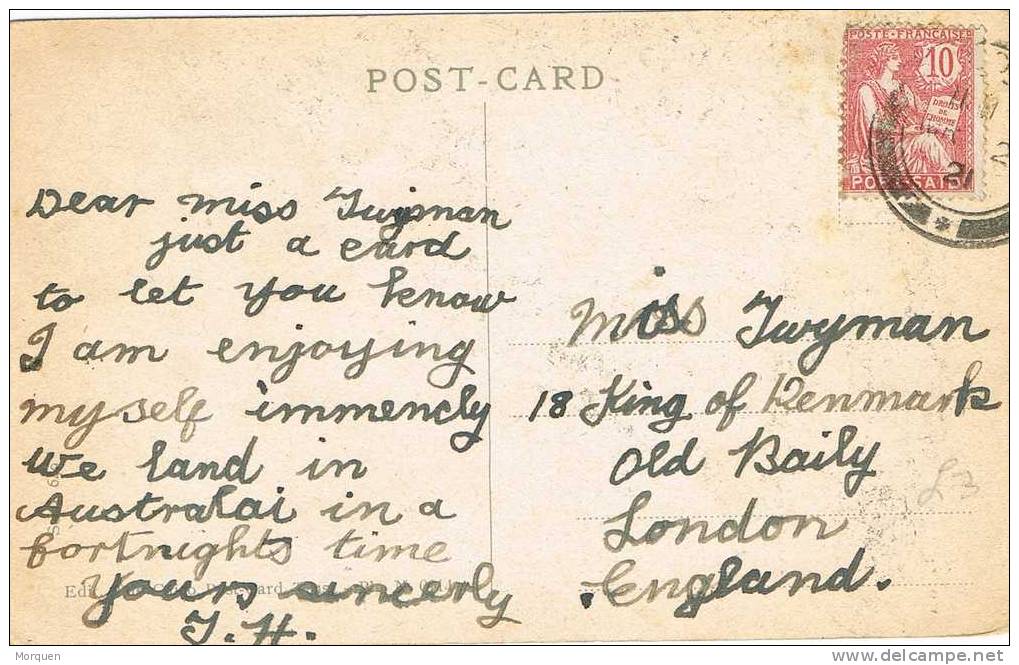 POST-CARD
POSTE·FRANÇAISE
10
DROITS
DE
L'HOMME
PORT-SAID
21
Dear miss Twyman
just a card
to let you know
I am enjoying
myself immencly
we land in
Australai in a
fortnights time
yours sincerly
J.H.
miss Twyman
18 King of Denmark
Old Baily
London
England.
£3
Morquen
www.delcampe.net